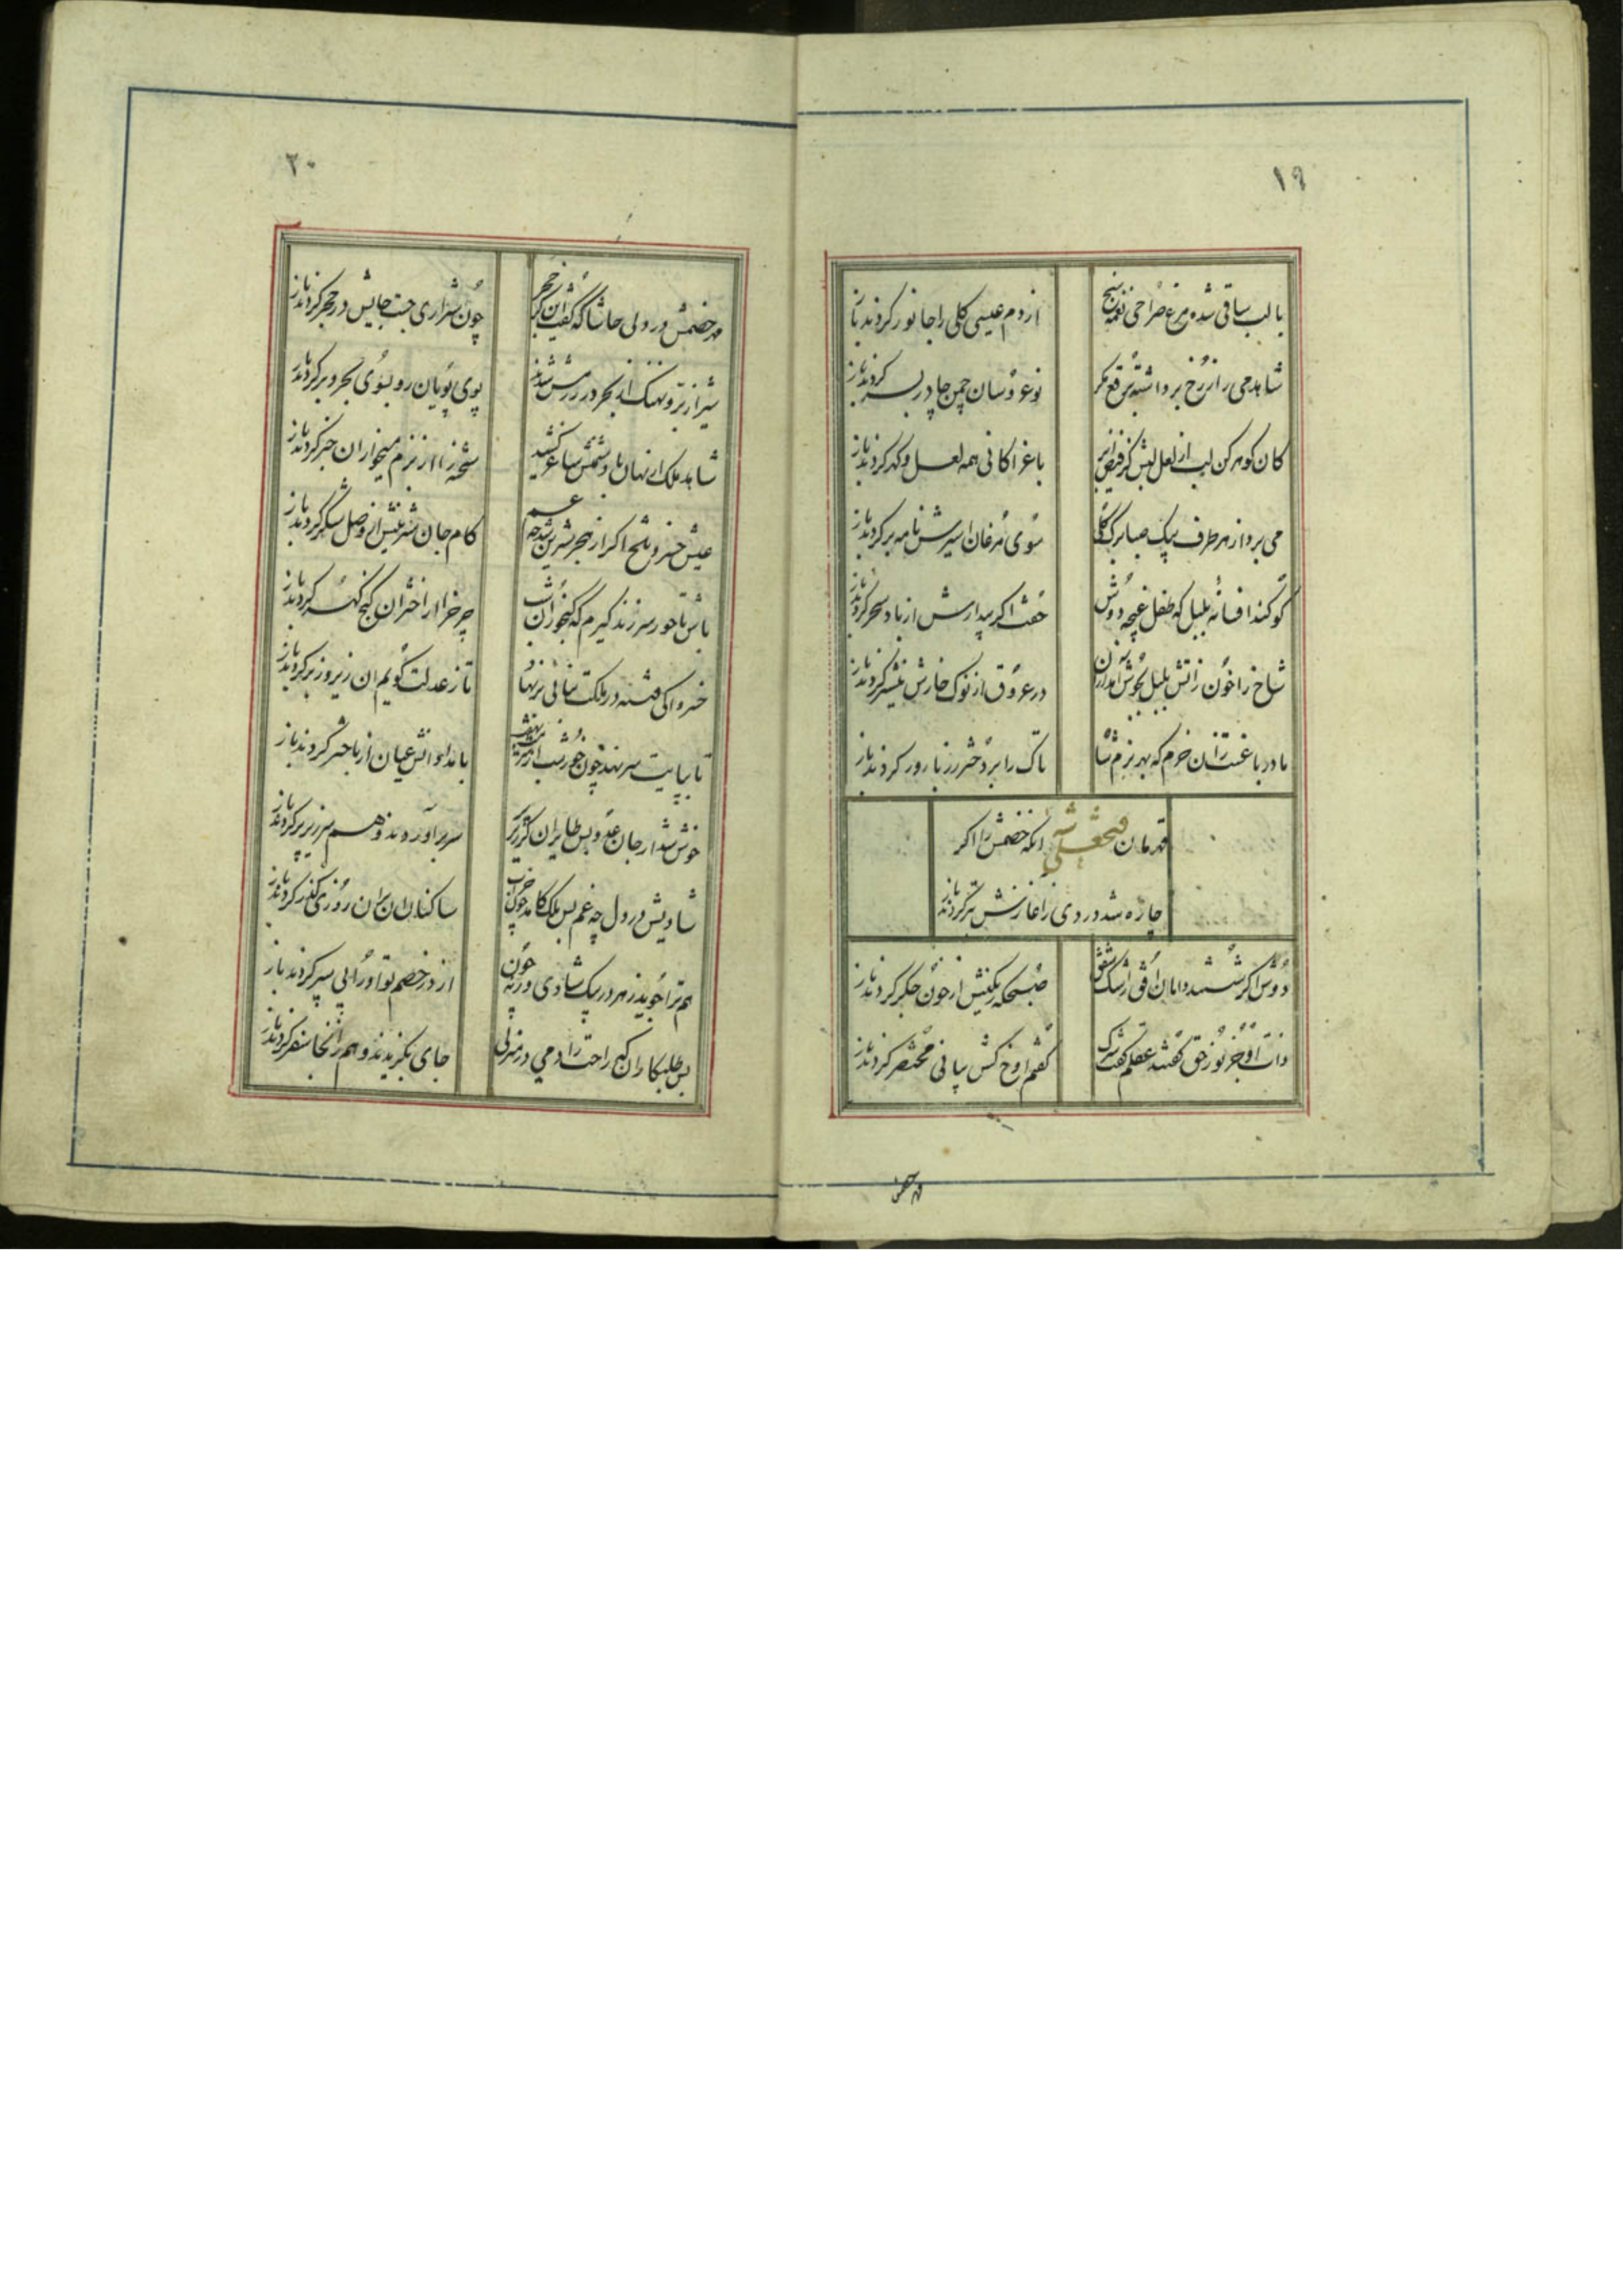 ١٩
با لب ساقی شده مرغ صراحی نغمه سنج
از دم عیسی گلی را جانور کردند باز
شاهد می را ز رخ برداشته برقع مگر
نوعروسان چمن چادر بسر کردند باز
کان گوهر کن لب از لعل لبش کز فیض ابر
باغ را کانی همه لعل و گهر کردند باز
می برد از هر طرف پیک صبا برگ گلی
سوی مرغان اسیرش نامه بر کردند باز
گو کند افسانه بلبل که طفل غنچه دوش
خفت اگر بیدارش از باد سحر کردند باز
شاخ را خون ز اتش بلبل بجوش آمد
در عروق از نوک خارش نیشتر کردند باز
مادر باغست زان خرم که بهر بزم شاه
تاک را بر دختر رز بارور کردند باز
قهرمان فتحعلی شه انکه خصمش را اگر
چاره شد دردی ز آغازش بتر کردند باز
دوش اگر شستند دامان افق ز اشک شفق
صبحگه رنگینش از خون جگر کردند باز
ذات او جز نور حق گفتند عقلم گفت شرک
گفتم اوخ کش بیانی مختصر کردند باز
مهر خصمش
٢٠
مهر خصمش در دلی حاشا که گفت این
چون شراری جست جایش در حجر کردند باز
شیر از بر و نهنگ از بحر در رزمش شدند
پوی پویان رو بسوی بحر و بر کردند باز
شاهد ملک از نهان با دشمنش ساغر کشید
شحنه را از بزم میخواران خبر کردند باز
عیش خسرو تلخ اگر از هجر شیرین شد چه غم
کام جان شیرینش از وصل شکر کردند باز
باش تا خور سر زند گیرم که گنجوران شب
چرخ را از اختران گنج گهر کردند باز
خسروا کی فتنه در ملکت
تا ز عدلت گویم ان زیر و زبر کردند باز
تا بپایت سر نهد چون خور شب
بامدادانش عیان از باختر کردند باز
خوش شد از جان عدو بس طایران
سر بر آوردند و هم سر زیر پر کردند باز
شادیش در دل چه غم بس ملک کامد چون خراب
ساکنان ان بران روزی گذر کردند باز
هم ترا جوید ز هر در پیک شادی ورنه چون
از در خصم تو او را پی سپر کردند باز
بس طلبکاران گنج راحت را دمی در منزلی
جای بگزیدند و هم زانجا سفر کردند باز